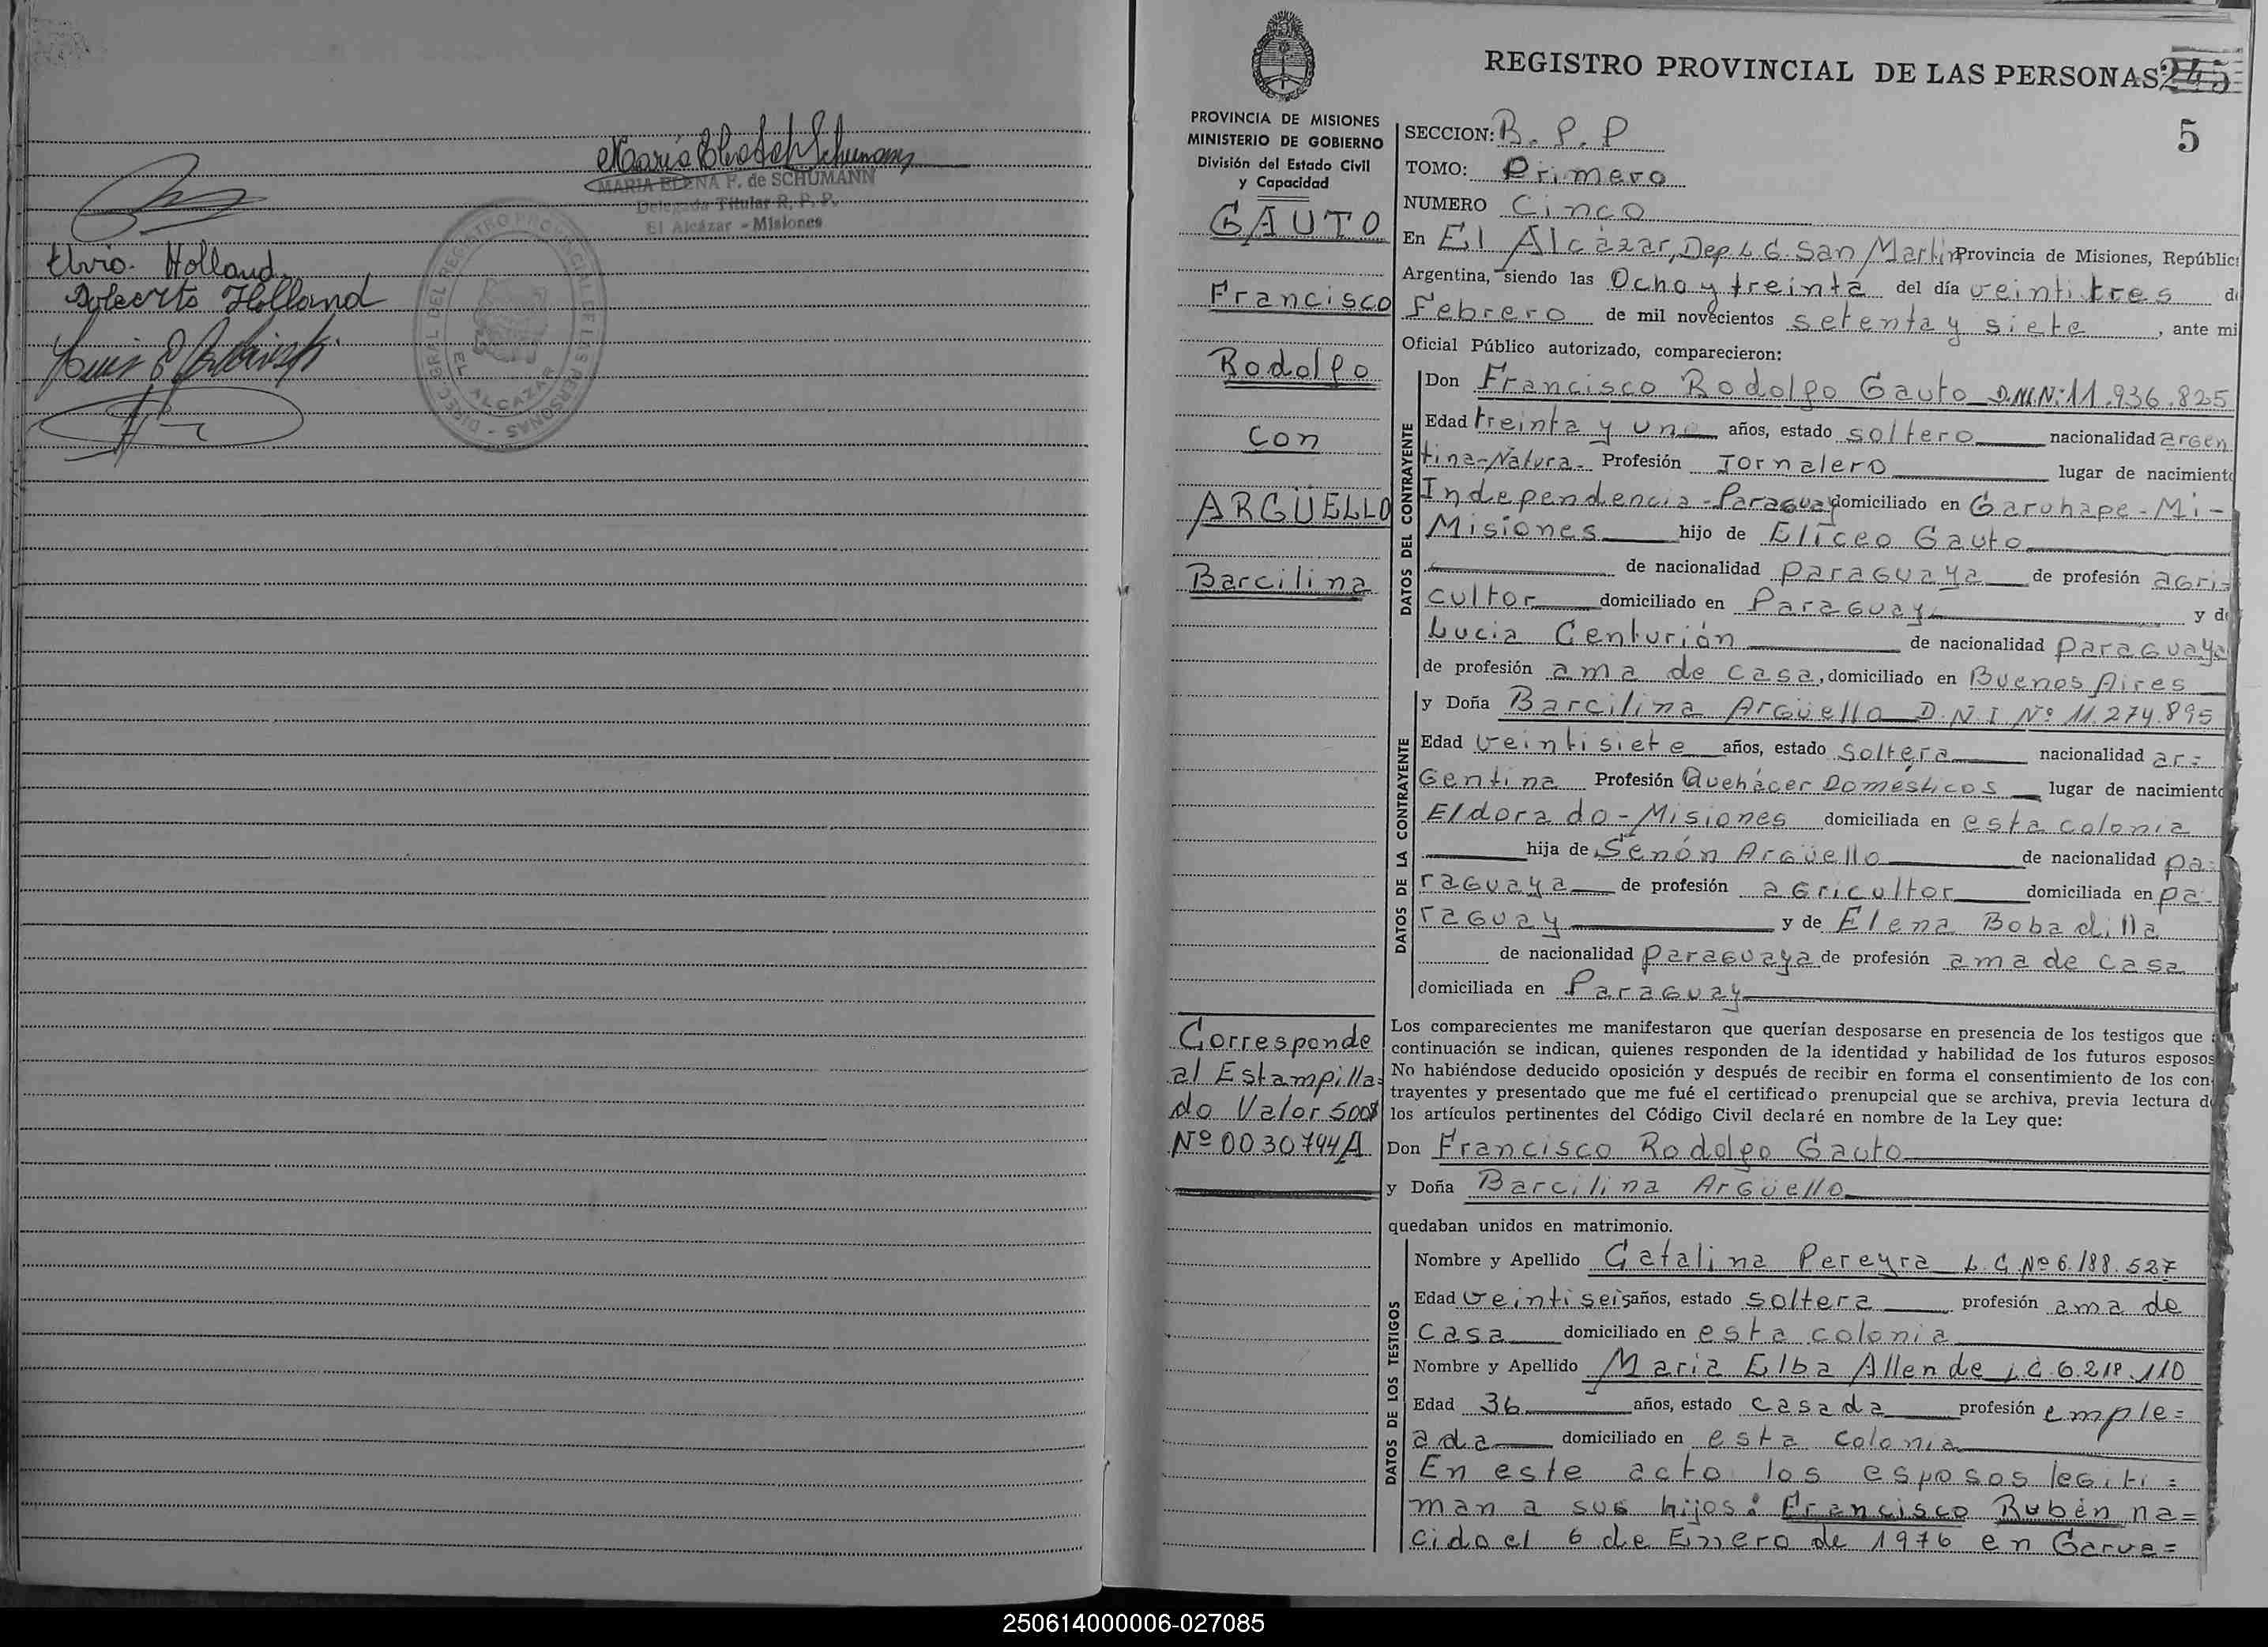 MARIA ELENA F. de SCHUMANN
Delegada Titular R. P. P.
El Alcázar - Misiones
Elvio Holland
Roberto Holland
DIREC. GRAL DEL REGISTRO PROVINCIAL DE LAS PERSONAS -
EL ALCAZAR
REGISTRO PROVINCIAL DE LAS PERSONAS 245
5
PROVINCIA DE MISIONES
MINISTERIO DE GOBIERNO
División del Estado Civil
y Capacidad
GAUTO
Francisco
Rodolfo
con
ARGÜELLO
Barcilina
Corresponde
al Estampilla=
do Valor 500$
Nº 0030744A
SECCION: R. P. P
TOMO: Primero
NUMERO Cinco
En El Alcázar, Dep. L. G. San Martín Provincia de Misiones, Repúblic
Argentina, siendo las Ocho y treinta del día veintitres d
Febrero de mil novecientos setenta y siete, ante mi
Oficial Público autorizado, comparecieron:
DATOS DEL CONTRAYENTE
Don Francisco Rodolfo Gauto D.N.I. Nº 11.936.825
Edad treinta y uno años, estado soltero nacionalidad argen
tina-Natura. Profesión Jornalero lugar de nacimiento
Independencia-Paraguay domiciliado en Garuhape-Mi-
Misiones hijo de Elíceo Gauto
de nacionalidad paraguaya de profesión agri=
cultor domiciliado en Paraguay y de
Lucia Centurión de nacionalidad paraguaya
de profesión ama de casa, domiciliado en Buenos Aires
DATOS DE LA CONTRAYENTE
y Doña Barcilina Argüello D.N.I Nº 11.274.895
Edad veintisiete años, estado soltera nacionalidad ar=
gentina Profesión Quehácer Domésticos lugar de nacimiento
Eldorado-Misiones domiciliada en esta colonia
hija de Senón Argüello de nacionalidad pa=
raguaya de profesión agricultor domiciliada en pa=
raguay y de Elena Bobadilla
de nacionalidad paraguaya de profesión ama de casa
domiciliada en Paraguay
Los comparecientes me manifestaron que querían desposarse en presencia de los testigos que a
continuación se indican, quienes responden de la identidad y habilidad de los futuros esposos
No habiéndose deducido oposición y después de recibir en forma el consentimiento de los con
trayentes y presentado que me fué el certificado prenupcial que se archiva, previa lectura d
los artículos pertinentes del Código Civil declaré en nombre de la Ley que:
Don Francisco Rodolfo Gauto
y Doña Barcilina Argüello
quedaban unidos en matrimonio.
DATOS DE LOS TESTIGOS
Nombre y Apellido Catalina Pereyra L.C Nº 6.188.527
Edad veintiseis años, estado soltera profesión ama de
casa domiciliado en esta colonia
Nombre y Apellido Maria Elba Allende L.C. 6.218.110
Edad 36 años, estado casada profesión emple=
ada domiciliado en esta colonia
En este acto los esposos legiti=
man a sus hijos: Francisco Rubén na=
cido el 6 de Enero de 1976 en Garua=
250614000006-027085